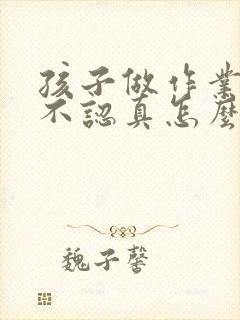 孩子做作業
不認真怎麼
魏子馨